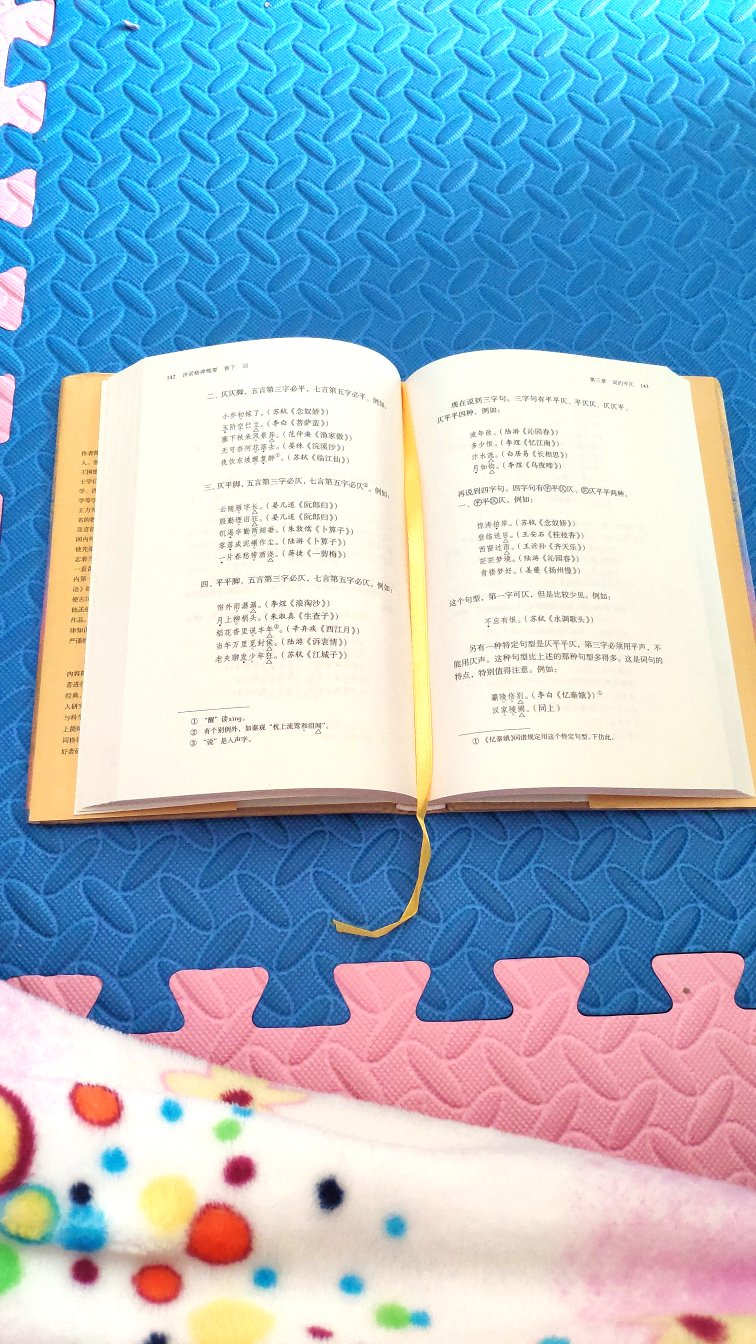 142 诗词格律概要 卷下 词
二、仄仄脚，五言第三字必平，七言第五字必平。例如：
小乔初嫁了。（苏轼《念奴娇》）
玉阶空伫立。（李白《菩萨蛮》）
塞下秋来风景异。（范仲淹《渔家傲》）
无可奈何花落去。（晏殊《浣溪沙》）
夜饮东坡醒复醉①。（苏轼《临江仙》）
三、仄平脚，五言第三字必仄，七言第五字必仄②。例如：
云随雁字长。（晏几道《阮郎归》）
殷勤理旧狂。（晏几道《阮郎归》）
饥渴辛勤两翅垂。（朱敦儒《卜算子》）
零落成泥碾作尘。（陆游《卜算子》）
一片春愁待酒浇。（蒋捷《一剪梅》）
四、平平脚，五言第三字必仄，七言第五字必仄。例如：
帘外雨潺潺。（李煜《浪淘沙》）
月上柳梢头。（朱淑真《生查子》）
稻花香里说丰年③。（辛弃疾《西江月》）
当年万里觅封侯。（陆游《诉衷情》）
老夫聊发少年狂。（苏轼《江城子》）
① “醒”读xīng。
② 有个别例外，如秦观“枕上流莺和泪闻”。
③ “说”是入声字。
第三章 词的平仄 143
现在说到三字句。三字句有平平仄、平仄仄、仄仄平、
仄平平四种。例如：
流年改。（陆游《沁园春》）
多少恨。（李煜《忆江南》）
汴水流。（白居易《长相思》）
月如钩。（李煜《乌夜啼》）
再说到四字句。四字句有㊉平㊀仄、仄仄平平两种。
一、平平仄仄。例如：
惊涛拍岸。（苏轼《念奴娇》）
登临送目。（王安石《桂枝香》）
西窗过雨。（王沂孙《齐天乐》）
茫茫梦境。（陆游《沁园春》）
青楼梦好。（姜夔《扬州慢》）
这个句型，第一字可仄，但是比较少见。例如：
不应有恨。（苏轼《水调歌头》）
另有一种特定句型是仄平平仄，第三字必须用平声，不
能用仄声。这种句型比上述的那种句型多得多。这是词句的
特点，特别值得注意。例如：
灞陵伤别。（李白《忆秦娥》）①
汉家陵阙。（同上）
① 《忆秦娥》词谱规定用这个特定句型。下仿此。